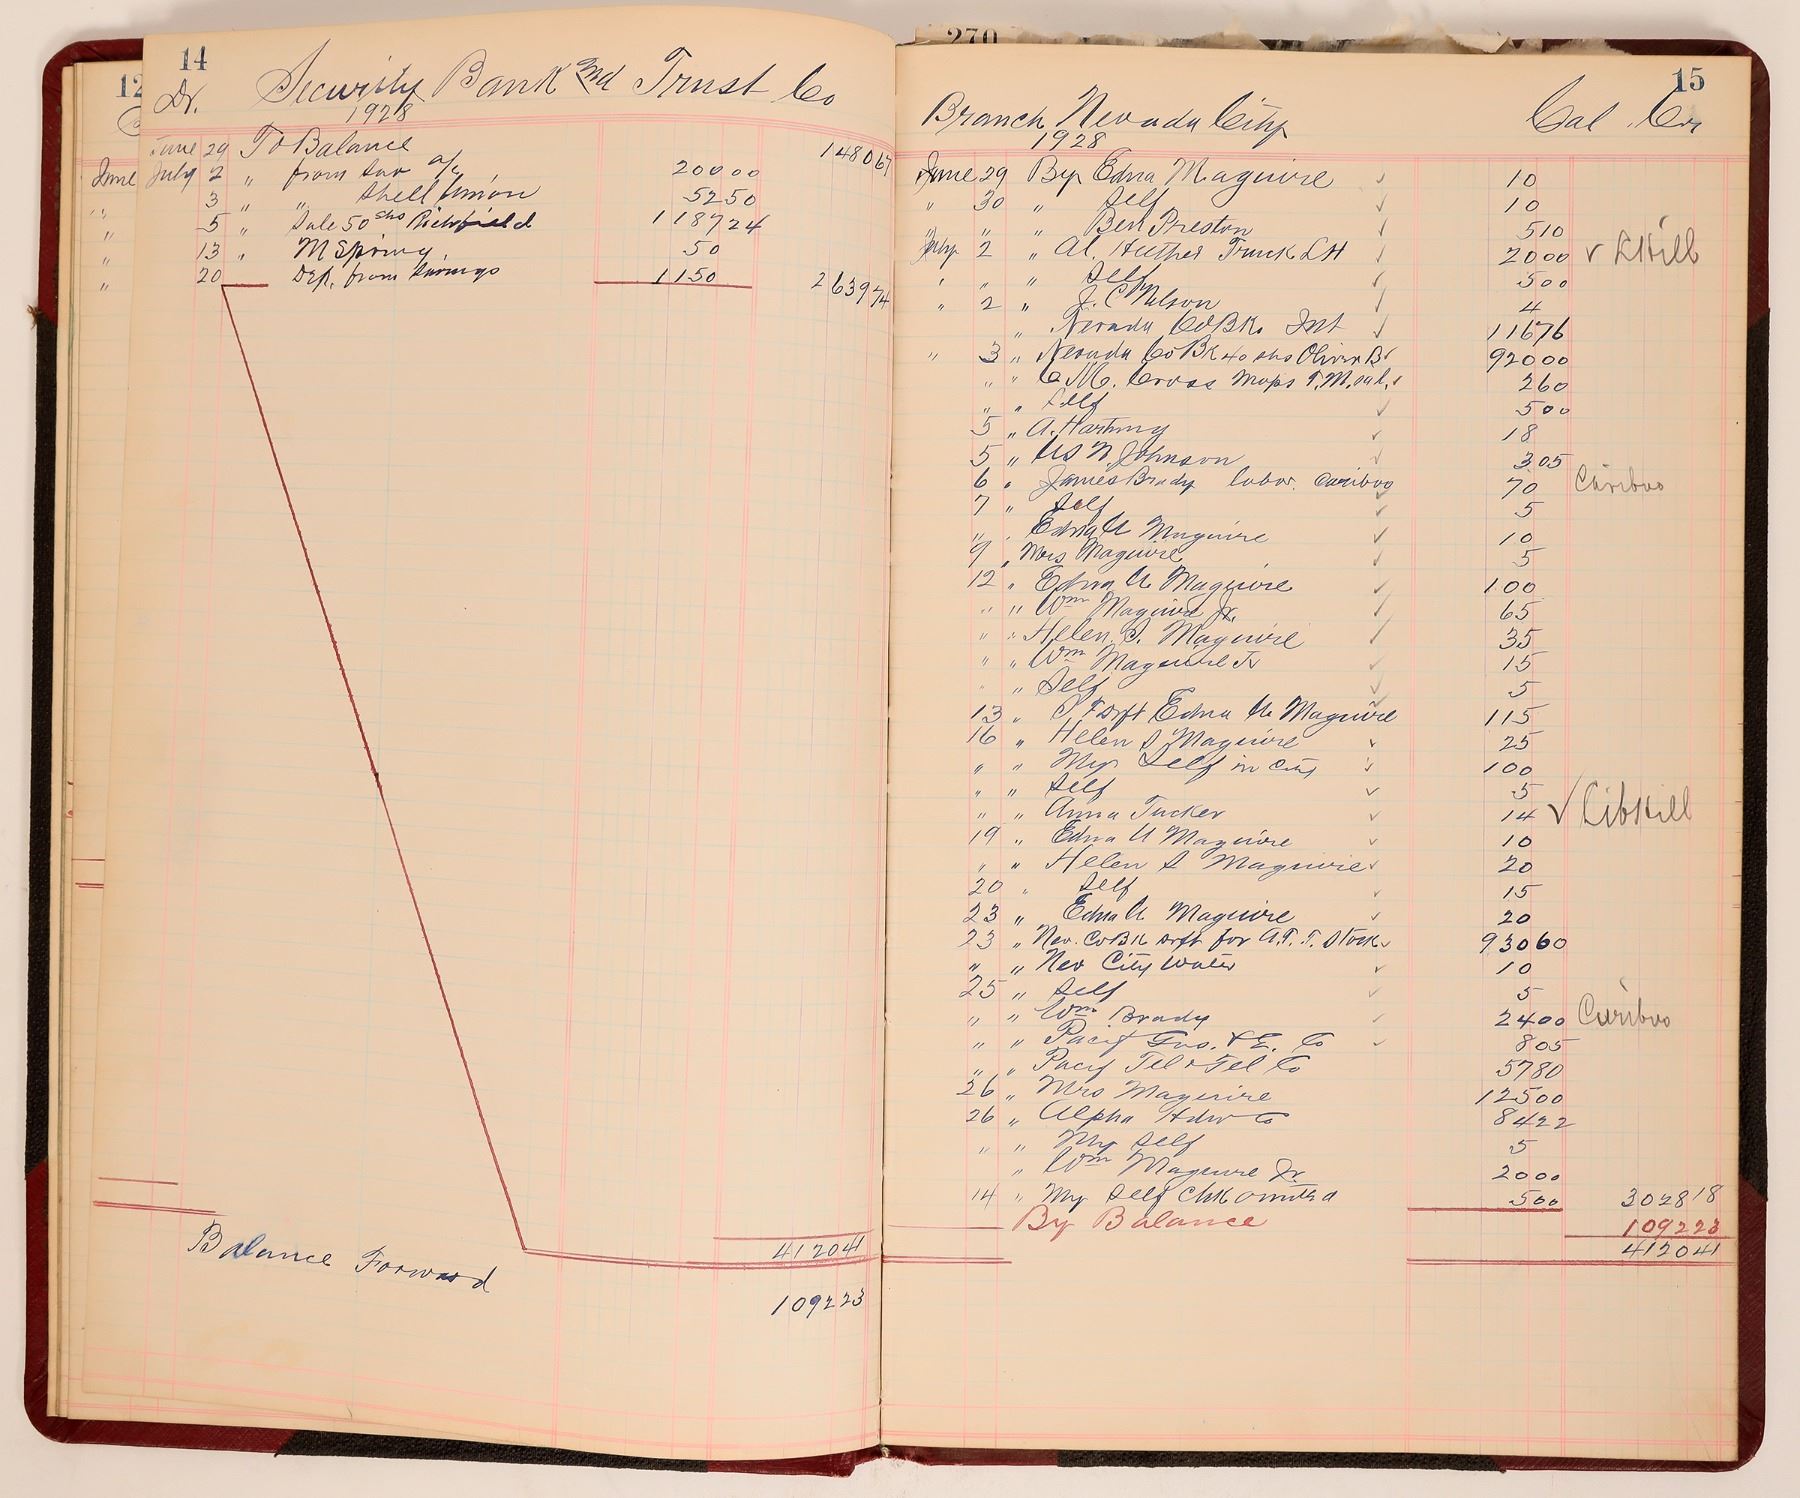 12
14
Dr. Security Bank and Trust Co
1928
June 29 To Balance 148067
June July 2 " from Sav a/c 20000
" 3 " " Shell Union 5250
" 5 " Sale 50 shs Richfield 118724
" 13 " M Spring 50
" 20 Dep. from Savings 1150 263974
412041
Balance Forward 109223
270
15
Branch Nevada City Cal. Cr
1928
June 29 By Edna Maguire ✓ 10
" 30 " Self ✓ 10
" " " Ben Preston 510
July 2 " Al. Huther Trunk LH ✓ 2000 ✓ LHill
" " " Self 500
" 2 " J. C Nelson ✓ 4
" Nevada Co Bk. Int ✓ 11676
" 3 " Nevada Co Bk 40 shs Oliver B ✓ 92000
" " C. M. Cross Maps 260
" " Self ✓ 500
5 " A. Hartung ✓ 18
5 " N. Johnson ✓ 305
6 " James Brady labor. Caribou 70 Caribou
7 " Self ✓ 5
" . Edna U Maguire ✓ 10
9 " Mrs Maguire ✓ 5
12 " Edna U Maguire ✓ 100
" " Wm Maguire Jr. ✓ 65
" " Helen S. Maguire ✓ 35
" " Wm Maguire Jr ✓ 15
" " Self ✓ 5
13 " Drft Edna U Maguire 115
16 " Helen S Maguire ✓ 25
" " My Self in City ✓ 100
" " Self ✓ 5
" " Anna Tucker ✓ 14 ✓ LibHill
19 " Edna U Maguire ✓ 10
" " Helen S Maguire ✓ 20
20 " Self ✓ 15
23 " Edna U Maguire ✓ 20
23 " Nev. Co Bk Drft for A.T.T. Stock ✓ 93060
" " Nev City Water ✓ 10
25 " Self ✓ 5
" " Wm Brady ✓ 2400 Caribou
" " Pacif Gas. & E. Co ✓ 805
" " Pacif Tel & Tel Co 5780
26 " Mrs Maguire 12500
26 " Alpha Hdw Co 8422
" " My Self 5
" Wm Maguire Jr. 2000
14 " My Self Chk omitted 500 302818
By Balance 109223
412041